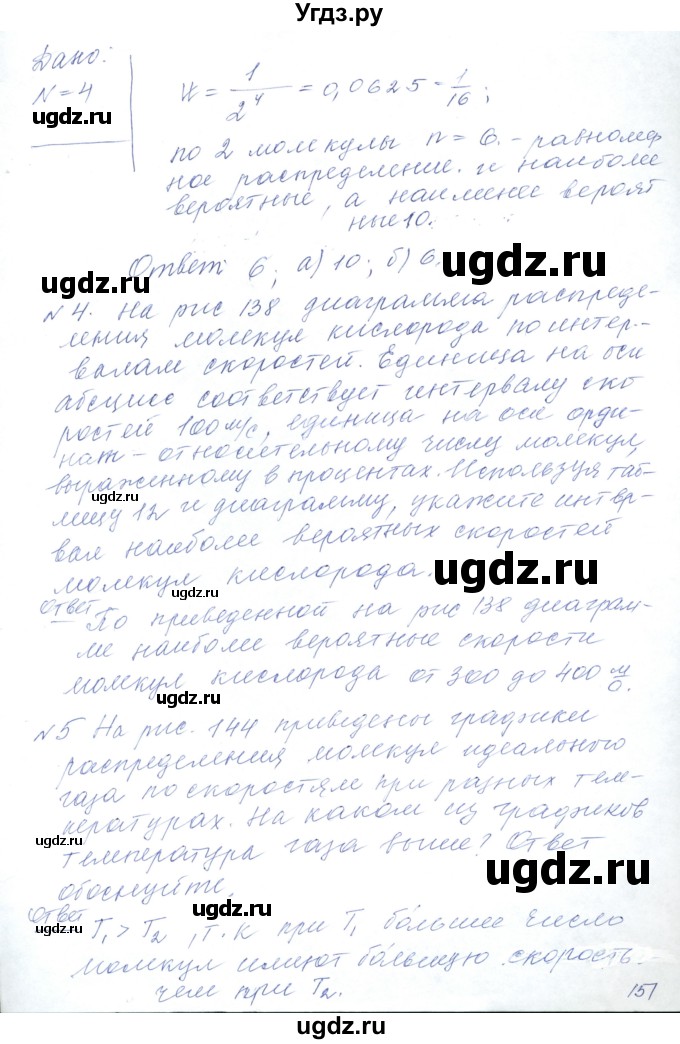 Угдз.ру
Дано:
N = 4
ugdz.ru
W = 1/2⁴ = 0,0625 - 1/16;
по 2 молекулы n = 6. - равномер
ное распределение. и наиболее
вероятные, а наименее вероят
ные 10.
Ответ: 6; а) 10; б) 6.
ugdz.ru
ugdz.ru
№ 4. На рис 138 диаграмма распреде-
ления молекул кислорода по интер-
валам скоростей. Единица на оси
абсцисс соответствует интервалу ско
ростей 100 м/с, единица на оси орди-
нат - относительному числу молекул,
выраженному в процентах. Используя таб-
ugdz.ru
лицу 12 и диаграмму, укажите интер-
вал наиболее вероятных скоростей
молекул кислорода.
ugdz.ru
ugdz.ru
Ответ
По приведенной на рис 138 диаграм-
ме наиболее вероятные скорости
молкул кислорода от 300 до 400 м/с.
ugdz.ru
№ 5 На рис. 144 приведены графики
распределения молекул идеального
газа по скоростям при разных тем-
пературах. На каком из графиков
ugdz.ru
температура газа выше? Ответ
обоснуйте.
ugdz.ru
Ответ
T₁ > T₂, т.к при T₁ бо́льшее число
ugdz.ru
молкул имеют бо́льшую скорость.
ugdz.ru
чем при T₂.
151
ugdz.ru